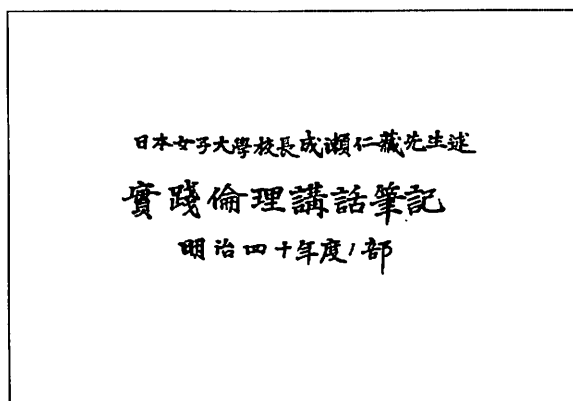 日本女子大學校長成瀬仁藏先生述
實踐倫理講話筆記
明治四十年度1部